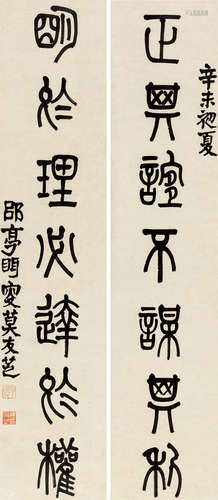 辛未初夏
正其誼不謀其利
明於理必達於權
郘亭眲叟莫友芝